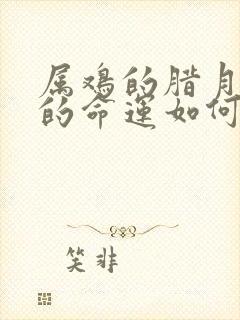 属鸡的腊月
的命运如何
笑非